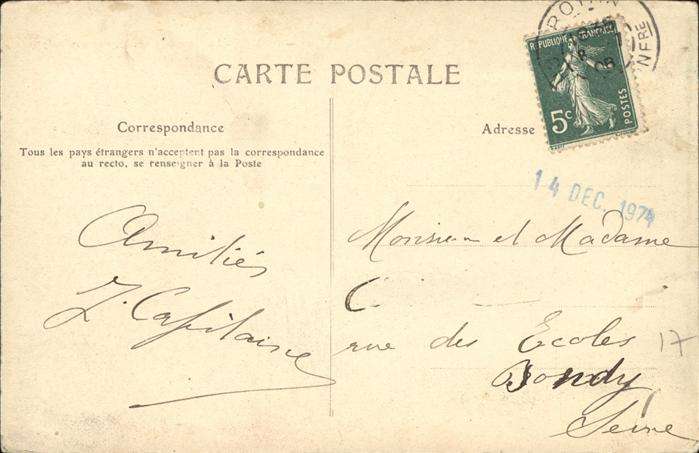 CARTE POSTALE
Correspondance
Tous les pays étrangers n'acceptent pas la correspondance
au recto, se renseigner à la Poste
Amitiés
J. Capitaine
Adresse
REPUBLIQUE FRANÇAISE
5c
POSTES
14 DEC. 1974
Monsieur et Madame
C
rue des Ecoles 17
Bondy
Seine